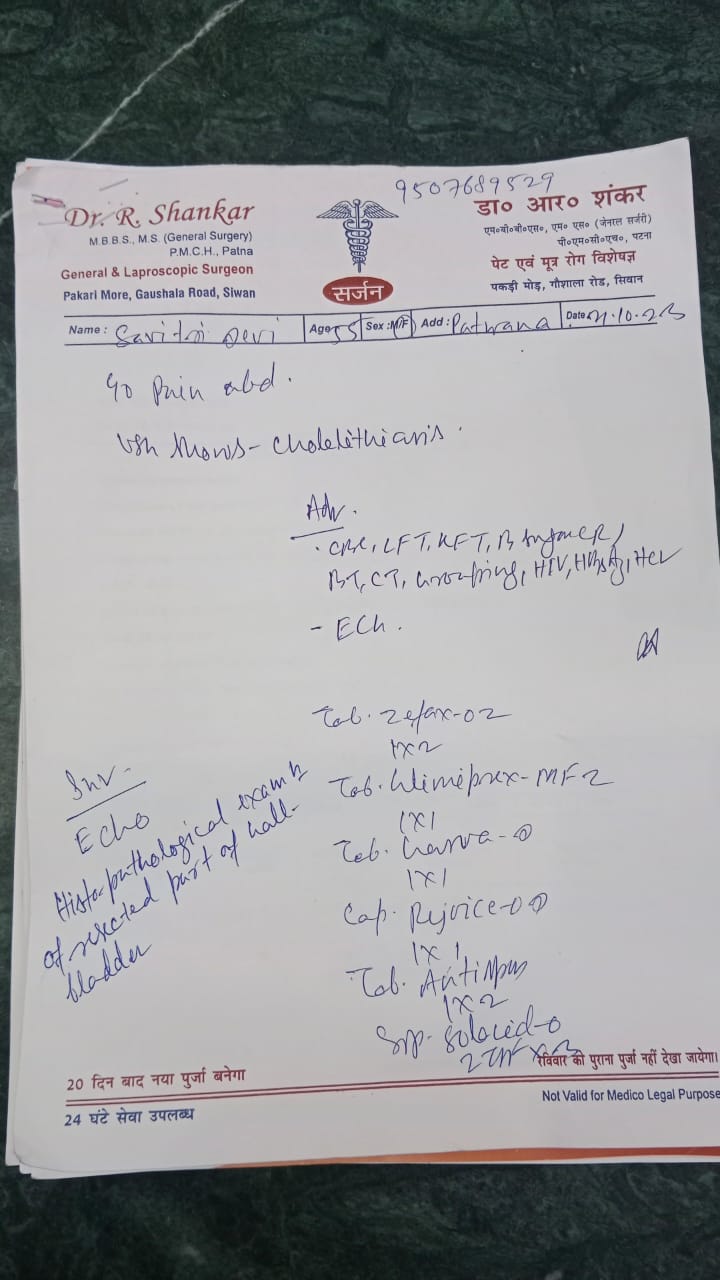 9507689529
Dr. R. Shankar
M.B.B.S., M.S. (General Surgery)
P.M.C.H., Patna
General & Laproscopic Surgeon
Pakari More, Gaushala Road, Siwan
सर्जन
डा० आर० शंकर
एम०बी०बी०एस०, एम० एस० (जेनरल सर्जरी)
पी०एम०सी०एच०, पटना
पेट एवं मूत्र रोग विशेषज्ञ
पकड़ी मोड़, गौशाला रोड, सिवान
Name: Savitri Devi Age: 55 Sex: M/F Add: Date 21.10.23
Pain abd.
Shows - Cholelithiasis.
Adv.
CBC, LFT, KFT, B
BT, CT, Grouping, HIV, HBsAg, HCV
Tab. Zefax-O2
1x2
Tab. Glimiprex-MF2
1x1
Tab.
1x1
Cap. Rejoice-
1x1
Tab.
1x2
Syp. Solacid-O
Inv.
Echo
Histopathological
of resected part of Gall-
bladder
रविवार को पुराना पुर्जा नहीं देखा जायेगा।
20 दिन बाद नया पुर्जा बनेगा
24 घंटे सेवा उपलब्ध
Not Valid for Medico Legal Purpose